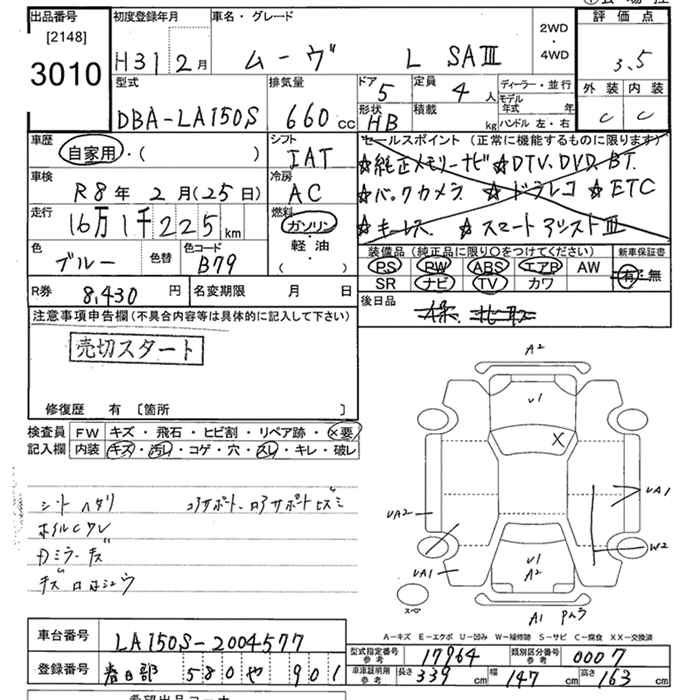 出品番号 初度登録年月 車名・グレード 2WD・4WD 評価点
[2148]
3010 H31 2月 ムーヴ L SAⅢ 3.5
型式 排気量 ドア 5 定員 4人 ディーラー・並行 外装 内装
DBA-LA150S 660cc 形状 HB 積載 kg モデル年式 年 ハンドル 左・右 C C
車歴 シフト セールスポイント (正常に機能するものに限ります)
自家用・( ) IAT ☆純正メモリーナビ ☆DTV.DVD.BT
車検 冷房 ☆バックカメラ ☆ドラレコ ☆ETC
R8年 2月(25日) AC ☆キーレス ☆スマートアシストⅢ
走行 16万1千225km 燃料 ガソリン・軽油・( )
色 ブルー 色替 色コード B79
装備品 (純正品に限り○をつけてください) 新車保証書
PS PW ABS エアB AW 有・無
SR ナビ TV カワ
R券 8,430円 名変期限 月 日 後日品
注意事項申告欄(不具合内容等は具体的に記入して下さい)
売切スタート
修復歴 有 [箇所 ]
検査員 FW キズ・飛石・ヒビ割・リペア跡・×要
記入欄 内装 キズ・汚レ・コゲ・穴・スレ・キレ・破レ
シートヘタリ コアサポート・ロアサポートヒズミ
ホイルCワレ
Fミラーキズ
A2
U1
X
UA1
UA2
W2
UA1
U1
A2
スペア
A1
A-キズ E-エクボ U-凹み W-補修跡 S-サビ C-腐食 XX-交換済
車台番号 LA150S-2004577
型式指定番号 参考 17964 類別区分番号 参考 0007
登録番号 春日部 580 や 901
車庫証明用 参考 長さ 339cm 幅 147cm 高さ 163cm